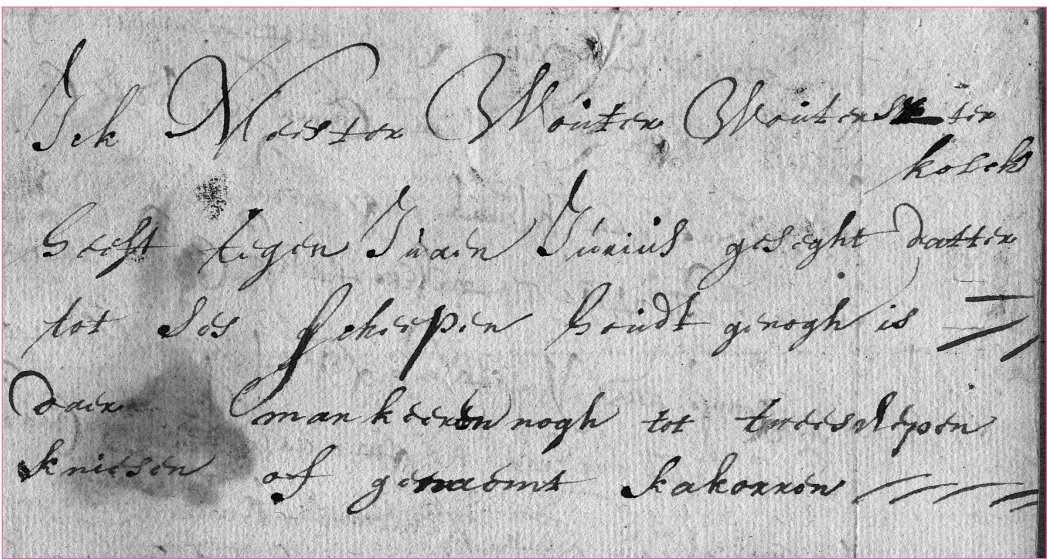 Ick Meester Wouter Wouters ter
kolck
heeft tegen Juain Jurius geseght datter
tot ses scheepen houdt genogh is
daer mankeeren nogh tot twee slepen
kniesen of genaemt kakorren